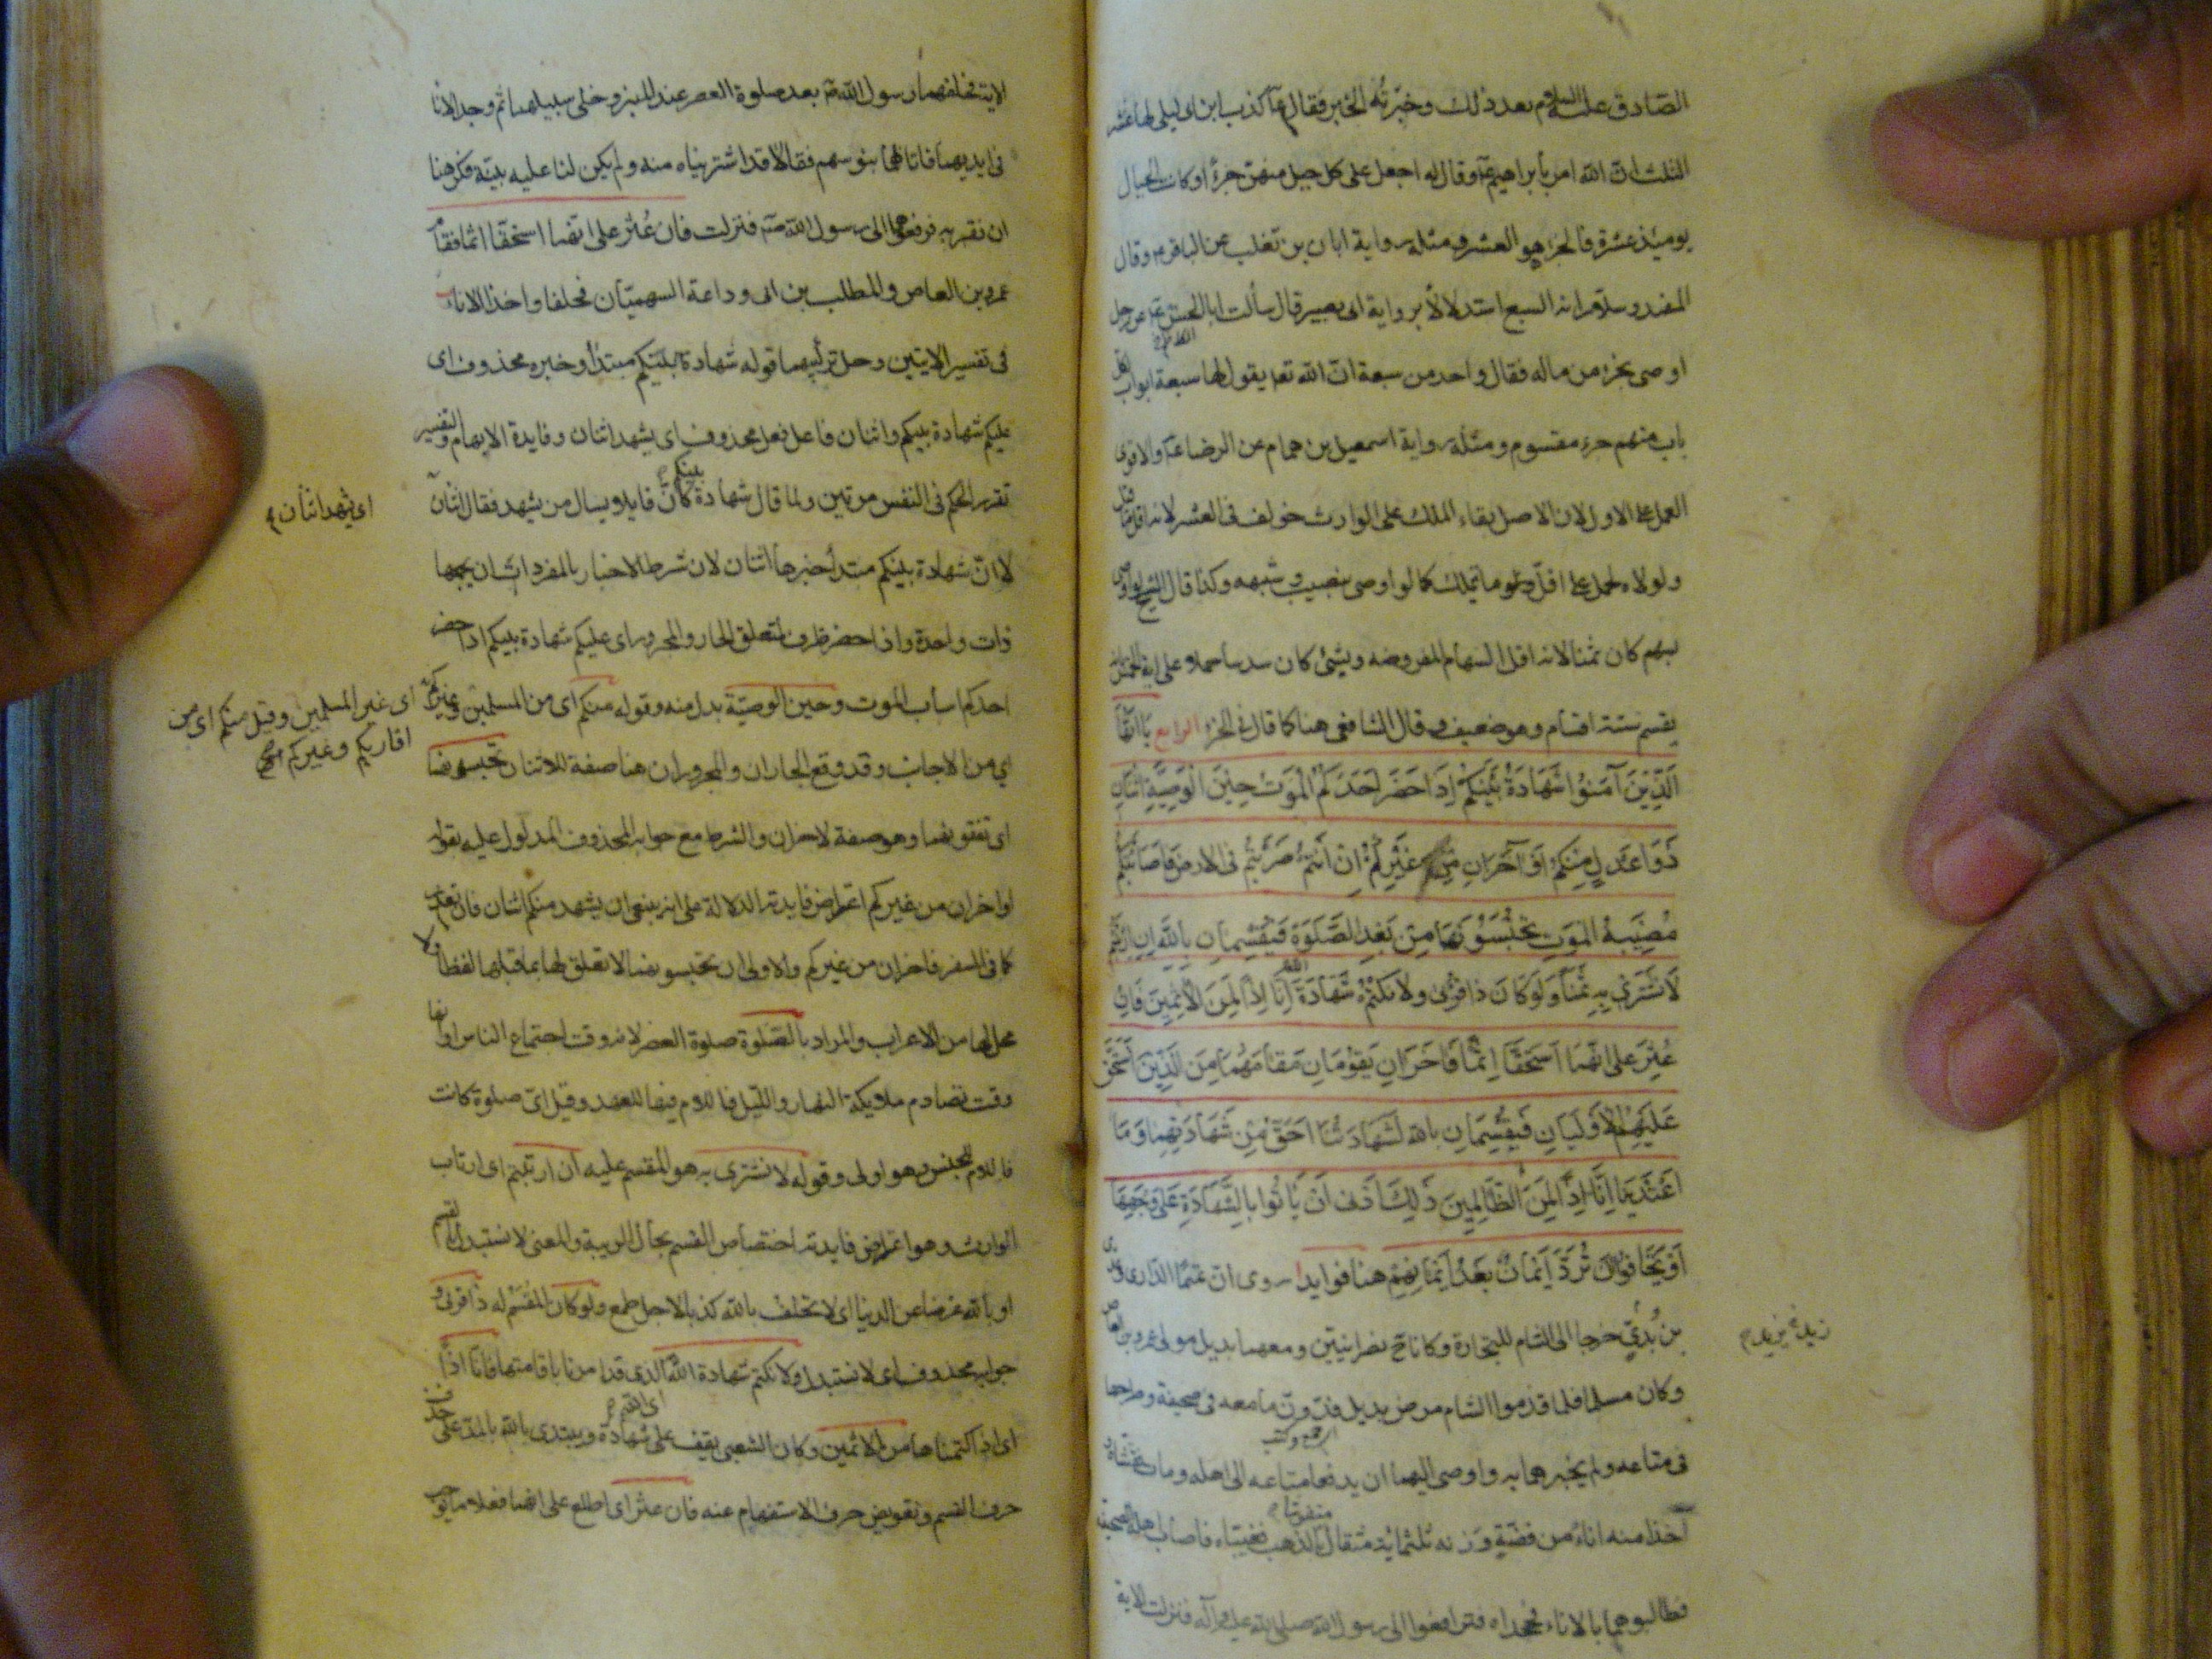 الصادق عليه السلام بعد ذلك وخبرته الخبر فقال ع كذب ابن ابى ليلى لها عشر
الثلث ان الله امر بابراهيم ع وقال له اجعل على كل جبل منهن جزءا وكانت الجبال
يومئذ عشرة فالجزء هو العشر ومثله رواية ابان بن تغلب عن الباقر ع وقال
المفيد وسلار انه السبع استدلالا برواية ابى بصير قال سألت ابا الحسن ع عن رجل
اوصى بجزء من ماله فقال واحد من سبعة ان الله تع يقول لها سبعة ابواب لكل
باب منهم جزء مقسوم ومثله رواية اسمعيل بن همام عن الرضا ع والاقوى
العمل على الاول لان الاصل بقاء الملك على الوارث خولف فى العشر لانه اقل ما قيل
ولولاه لحمل على اقل ما يتملك كما لو اوصى بنصيب وشبهه وكذا قال الشيخ لو اوصى
بسهم كان ثمنا لانه اقل السهام المفروضه وبشئ كان سدسا حملا على اية الخمس
يقسم ستة اقسام وهو ضعيف وقال الشافعى هنا كما قال فى الجزء الرابع يا ايها
الذين آمنوا شهادة بينكم اذا حضر احدكم الموت حين الوصية اثنان
ذوا عدل منكم او آخران من غيركم ان انتم ضربتم فى الارض فاصابتكم
مصيبة الموت تحبسونهما من بعد الصلوة فيقسمان بالله ان ارتبتم
لا نشترى به ثمنا ولو كان ذا قربى ولا نكتم شهادة الله انا اذا لمن الاثمين فان
عثر على انهما استحقا اثما فاخران يقومان مقامهما من الذين استحق
عليهم الاوليان فيقسمان بالله لشهادتنا احق من شهادتهما وما
اعتدينا انا اذا لمن الظالمين ذلك ادنى ان يأتوا بالشهادة على وجهها
او يخافوا ان ترد ايمان بعد ايمانهم هنا فوايد ا روى ان تميما الدارى وعدى
بن بدى خرجا الى الشام للتجارة وكانا ح نصرانيين ومعهما بديل مولى عمرو بن العاص
زيد يزيد
وكان مسلما فلما قدموا الشام مرض بديل فدون ما معه فى صحيفة وطرحها
فى متاعه ولم يخبرهما به واوصى اليهما ان يدفعا متاعه الى اهله ومات ففتشاه و
اخذا منه اناء من فضة وزنه ثلثمائة مثقال منقوشا بالذهب فغيباه فاصاب اهله الصحيفة
فطالبوهما بالاناء فجحداه فترافعوا الى رسول الله صلى الله عليه وآله فنزلت الاية
الاية فحلفهما رسول الله ص بعد صلوة العصر عند المنبر وخلى سبيلهما ثم وجد الانا
فى ايديهما فاتاهما بنو سهم فقالا قد اشتريناه منه ولم يكن لنا عليه بينة فكرهنا
ان نقر به فرفعوهما الى رسول الله ص فنزلت فان عثر على انهما استحقا اثما فقام
عمرو بن العاص والمطلب بن ابى وداعة السهميان فحلفا واخذا الاناء ب
فى تفسير الايتين وحل تركيبهما قوله شهادة بينكم مبتدأ وخبره محذوف اى
عليكم شهادة بينكم واثنان فاعل فعل محذوف اى يشهد اثنان وفايدة الابهام والتفسير
تقرير الحكم فى النفس مرتين ولما قال شهادة بينكم كان قايلا يسال من يشهد فقال اثنان
اى يشهد اثنان
لا ان شهادة بينكم مبتدأ خبرها اثنان لان شرط الاخبار بالمفرد ان يجمعها
ذات واحدة واذا حضر ظرف لمتعلق الجار والمجرور اى عليكم شهادة بينكم اذا حضر
احدكم اسباب الموت وحين الوصية بدل منه وقوله منكم اى من المسلمين وغيركم
اى غير المسلمين وقيل منكم اى من
اقاربكم وغيركم
اي من الاجانب وقد وقع الجاران والمجروران هنا صفة للاثنان تحبسونهما
اى تقفونهما وهو صفة لاخران والشرط مع جوابه المحذوف المدلول عليه بقوله
او اخران من غيركم اعتراض فايدته الدلالة على انه ينبغى ان يشهد منكم اثنان فان تعذر
كما فى السفر فاخران من غيركم والاولى ان تحبسونهما لا تعلق لها بما قبلها لفظا ولا
محل لها من الاعراب والمراد بالصلوة صلوة العصر لانه وقت اجتماع الناس او انها
وقت تصادم ملايكة النهار والليل فاللام فيها للعهد وقيل اى صلوة كانت
فاللام للجنس وهو اولى وقوله لا نشترى به هو المقسم عليه ان ارتبتم اى ارتاب
الوارث وهو اعتراض فايدته اختصاص القسم بحال الريبة والمعنى لا نستبدل بالقسم
او بالله عرضا عن الدنيا اى لا نحلف بالله كذبا لاجل طمع ولو كان المقسم له ذا قربى و
جوابه محذوف اى لا نستبدل ولا نكتم شهادة الله الذى قد امرنا باقامتها فانا اذا
اى اذا كتمناها من الاثمين وكان الشعبى يقف على شهادة ويبتدى بالله بالمد على حذف
حرف القسم وتعويض حرف الاستفهام عنه فان عثر اى اطلع على انهما فعلا ما يوجب